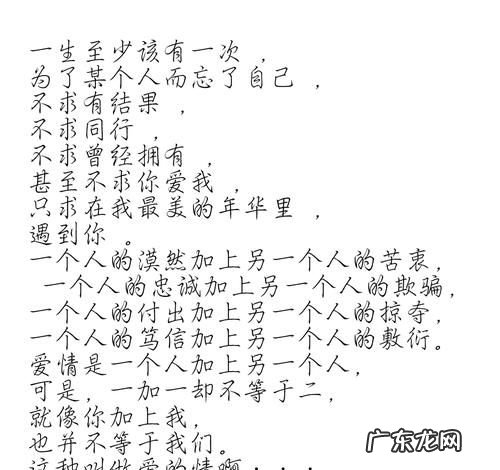 一生至少该有一次，
为了某个人而忘了自己，
不求有结果，
不求同行，
不求曾经拥有，
甚至不求你爱我，
只求在我最美的年华里，
遇到你。
一个人的漠然加上另一个人的苦衷，
一个人的忠诚加上另一个人的欺骗，
一个人的付出加上另一个人的掠夺，
一个人的笃信加上另一个人的敷衍。
爱情是一个人加上另一个人，
可是，一加一却不等于二，
就像你加上我，
也并不等于我们。
这种叫做爱的情啊...
广东龙网